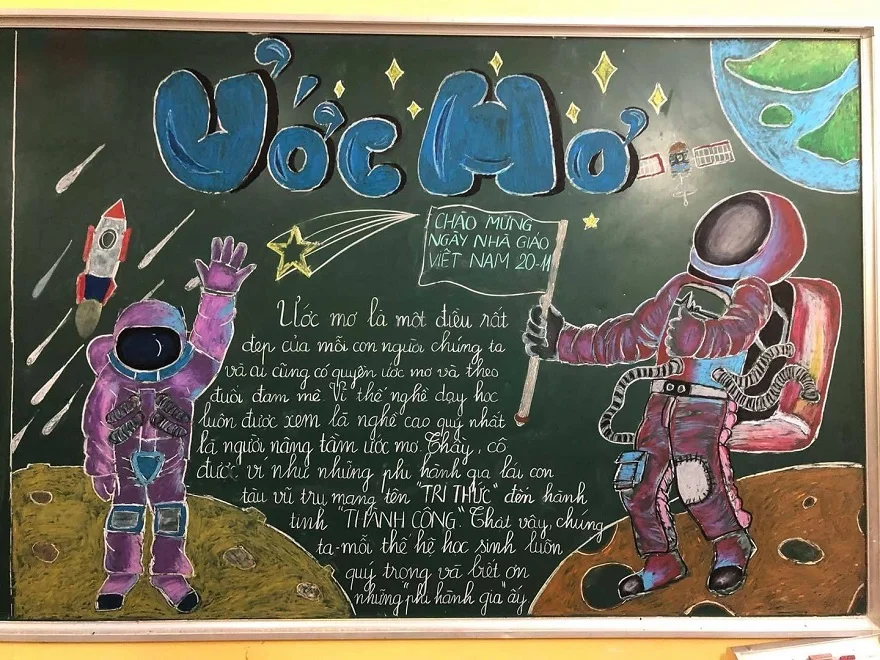 Ước Mơ
CHÀO MỪNG
NGÀY NHÀ GIÁO
VIỆT NAM 20-11
Ước mơ là một điều rất
đẹp của mỗi con người chúng ta
và ai cũng có quyền ước mơ và theo
đuổi đam mê. Vì thế nghề dạy học
luôn được xem là nghề cao quý nhất
là người nâng tầm ước mơ. Thầy, cô
được ví như những phi hành gia lái con
tàu vũ trụ mang tên "TRI THỨC" đến hành
tinh "THÀNH CÔNG." Thật vậy, chúng
ta-mỗi thế hệ học sinh luôn
quý trọng và biết ơn
những "phi hành gia" ấy